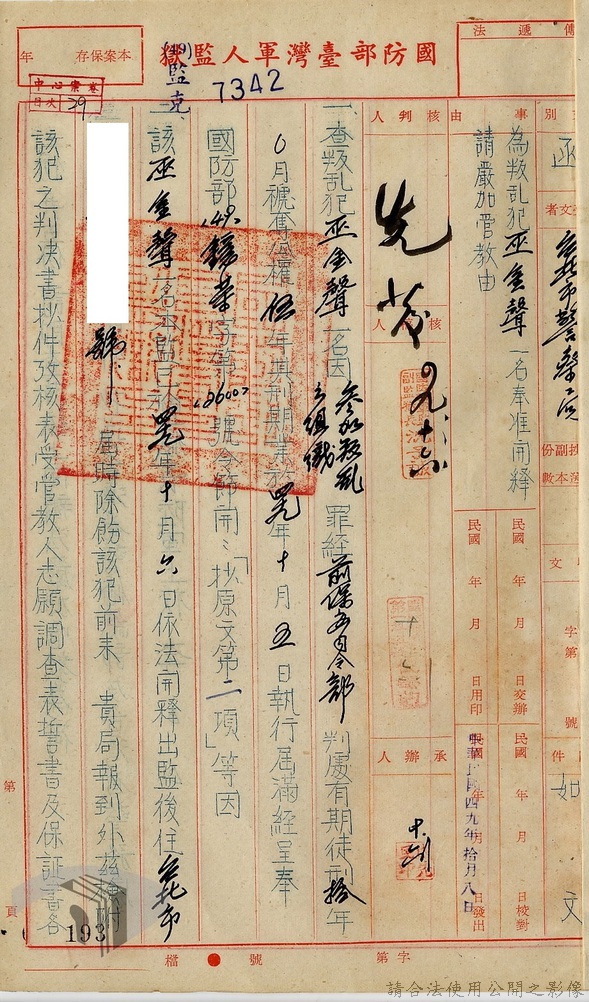 國防部臺灣軍人監獄
本案保存　年
(49)監克
7342
卷案心中
目次 29
傳遞法
別 函
受文者 台北市警察局
事由 為叛乱犯巫金聲一名奉准開釋
請嚴加管教由
核判人
核稿人
承辦人
副本份數
件 如文
字第 號
民國 年 月 日交辦
民國 年 月 日用印
民國 年 月 日校對
中華民國四九年拾月八日
民國 年 月 日發出
一、查叛乱犯巫金聲一名因參加叛乱之組織罪經前保安司令部判處有期徒刑拾年
0月褫奪公權伍年其刑期業於四九年十月五日執行屆滿經呈奉
國防部(49)字第(2600)號令飭開：「抄原文第二項」等因
二、該巫金聲一名本監已於四九年十月六日依法開釋出監後住台北市
號 屆時除飭該犯前來　貴局報到外茲檢附
該犯之判決書抄件攷核表受管教人志願調查表誓書及保証書各
第 193 頁
檔 號
字第
請合法使用公開之影像